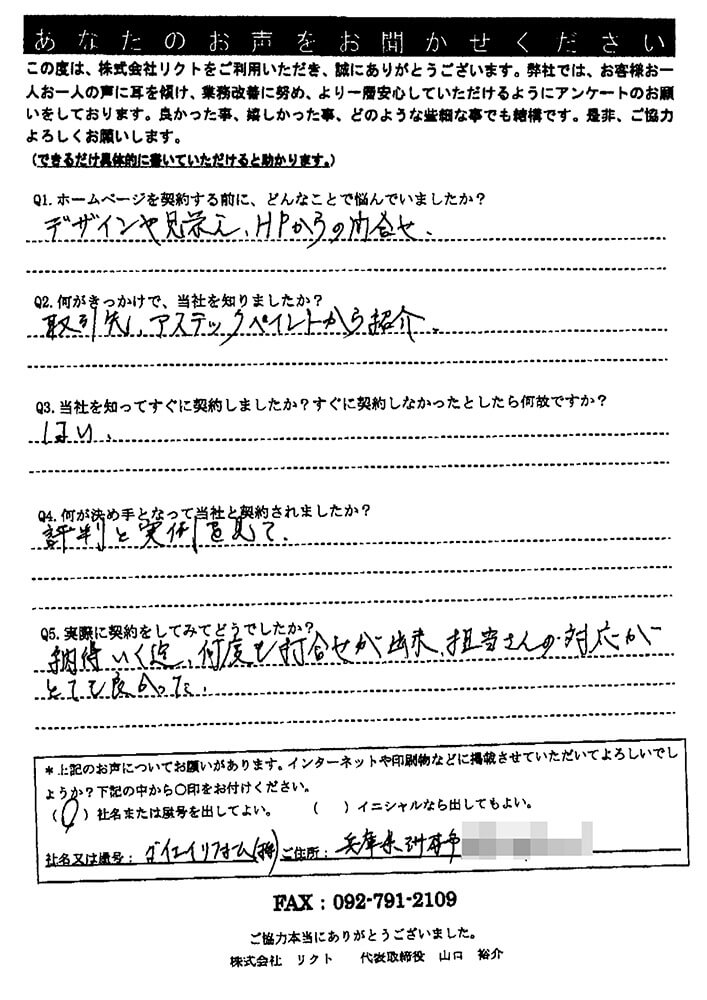 あなたのお声をお聞かせください
この度は、株式会社リクトをご利用いただき、誠にありがとうございます。弊社では、お客様お一
人お一人の声に耳を傾け、業務改善に努め、より一層安心していただけるようにアンケートのお願
いをしております。良かった事、嬉しかった事、どのような些細な事でも結構です。是非、ご協力
よろしくお願いします。
(できるだけ具体的に書いていただけると助かります。)
Q1.ホームページを契約する前に、どんなことで悩んでいましたか?
デザインや見栄え、HPからの問合せ.
Q2.何がきっかけで、当社を知りましたか?
取引先、アステックペイントから紹介.
Q3.当社を知ってすぐに契約しましたか?すぐに契約しなかったとしたら何故ですか?
はい、
Q4.何が決め手となって当社と契約されましたか?
評判と実例を見て.
Q5.実際に契約をしてみてどうでしたか?
納得いく迄、何度も打合せが出来、担当さんの対応が
とても良かった.
*上記のお声についてお願いがあります。インターネットや印刷物などに掲載させていただいてよろしいでし
ょうか?下記の中から〇印をお付けください。
(〇)社名または屋号を出してよい。 ( )イニシャルなら出してもよい。
社名又は屋号: ダイエイリフォーム(株) ご住所: 兵庫県洲本市
FAX:092-791-2109
ご協力本当にありがとうございました。
株式会社 リクト 代表取締役 山口 裕介